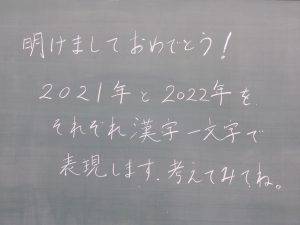 明けましておめでとう!
2021年と2022年を
それぞれ漢字一文字で
表現します.考えてみてね。